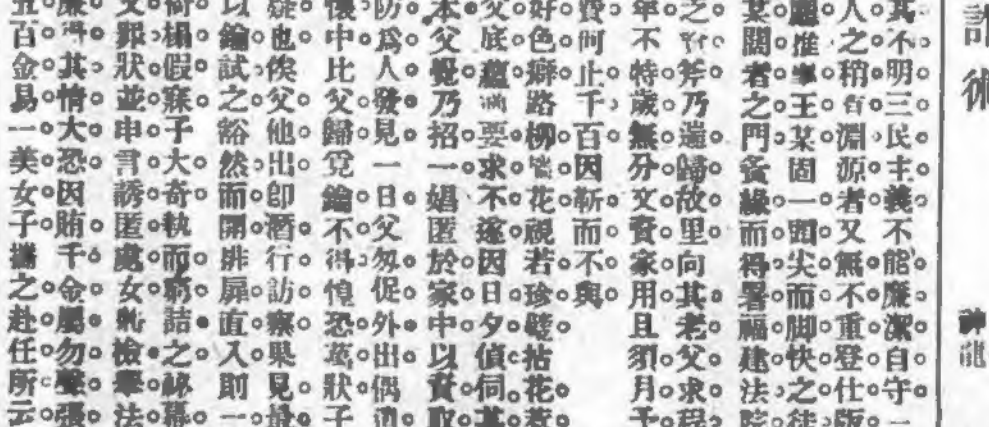 術
神龍
其不明三民主義不能廉潔自守一
人之稍有淵源者又無不重登仕版
推事王某固一頭尖而脚快之徒
某關者之門夤緣而得署福建法院
之資斧乃遄歸故里向其老父求
年不特歲無分文資家用且須月予
費何止千百因靳而不與
好色癖路柳墻花視若珍璧拈花惹
父底蘊 要求不遂因日夕偵伺其
本父 乃招一娼匿於家中以資取
防為人發見一日父匆促外出偶
懷中比父歸覓鑰不得惶恐萬狀子
疑也俟父他出卽潛行訪察果見
以鑰試之豁然而開排扉直入則一
假寐子大奇執而窮詰之
父罪狀並申言誘匿處女 檢舉法
廉得其情大恐因賄千金屬勿聲張
五百金易一美女子攜之赴任所云